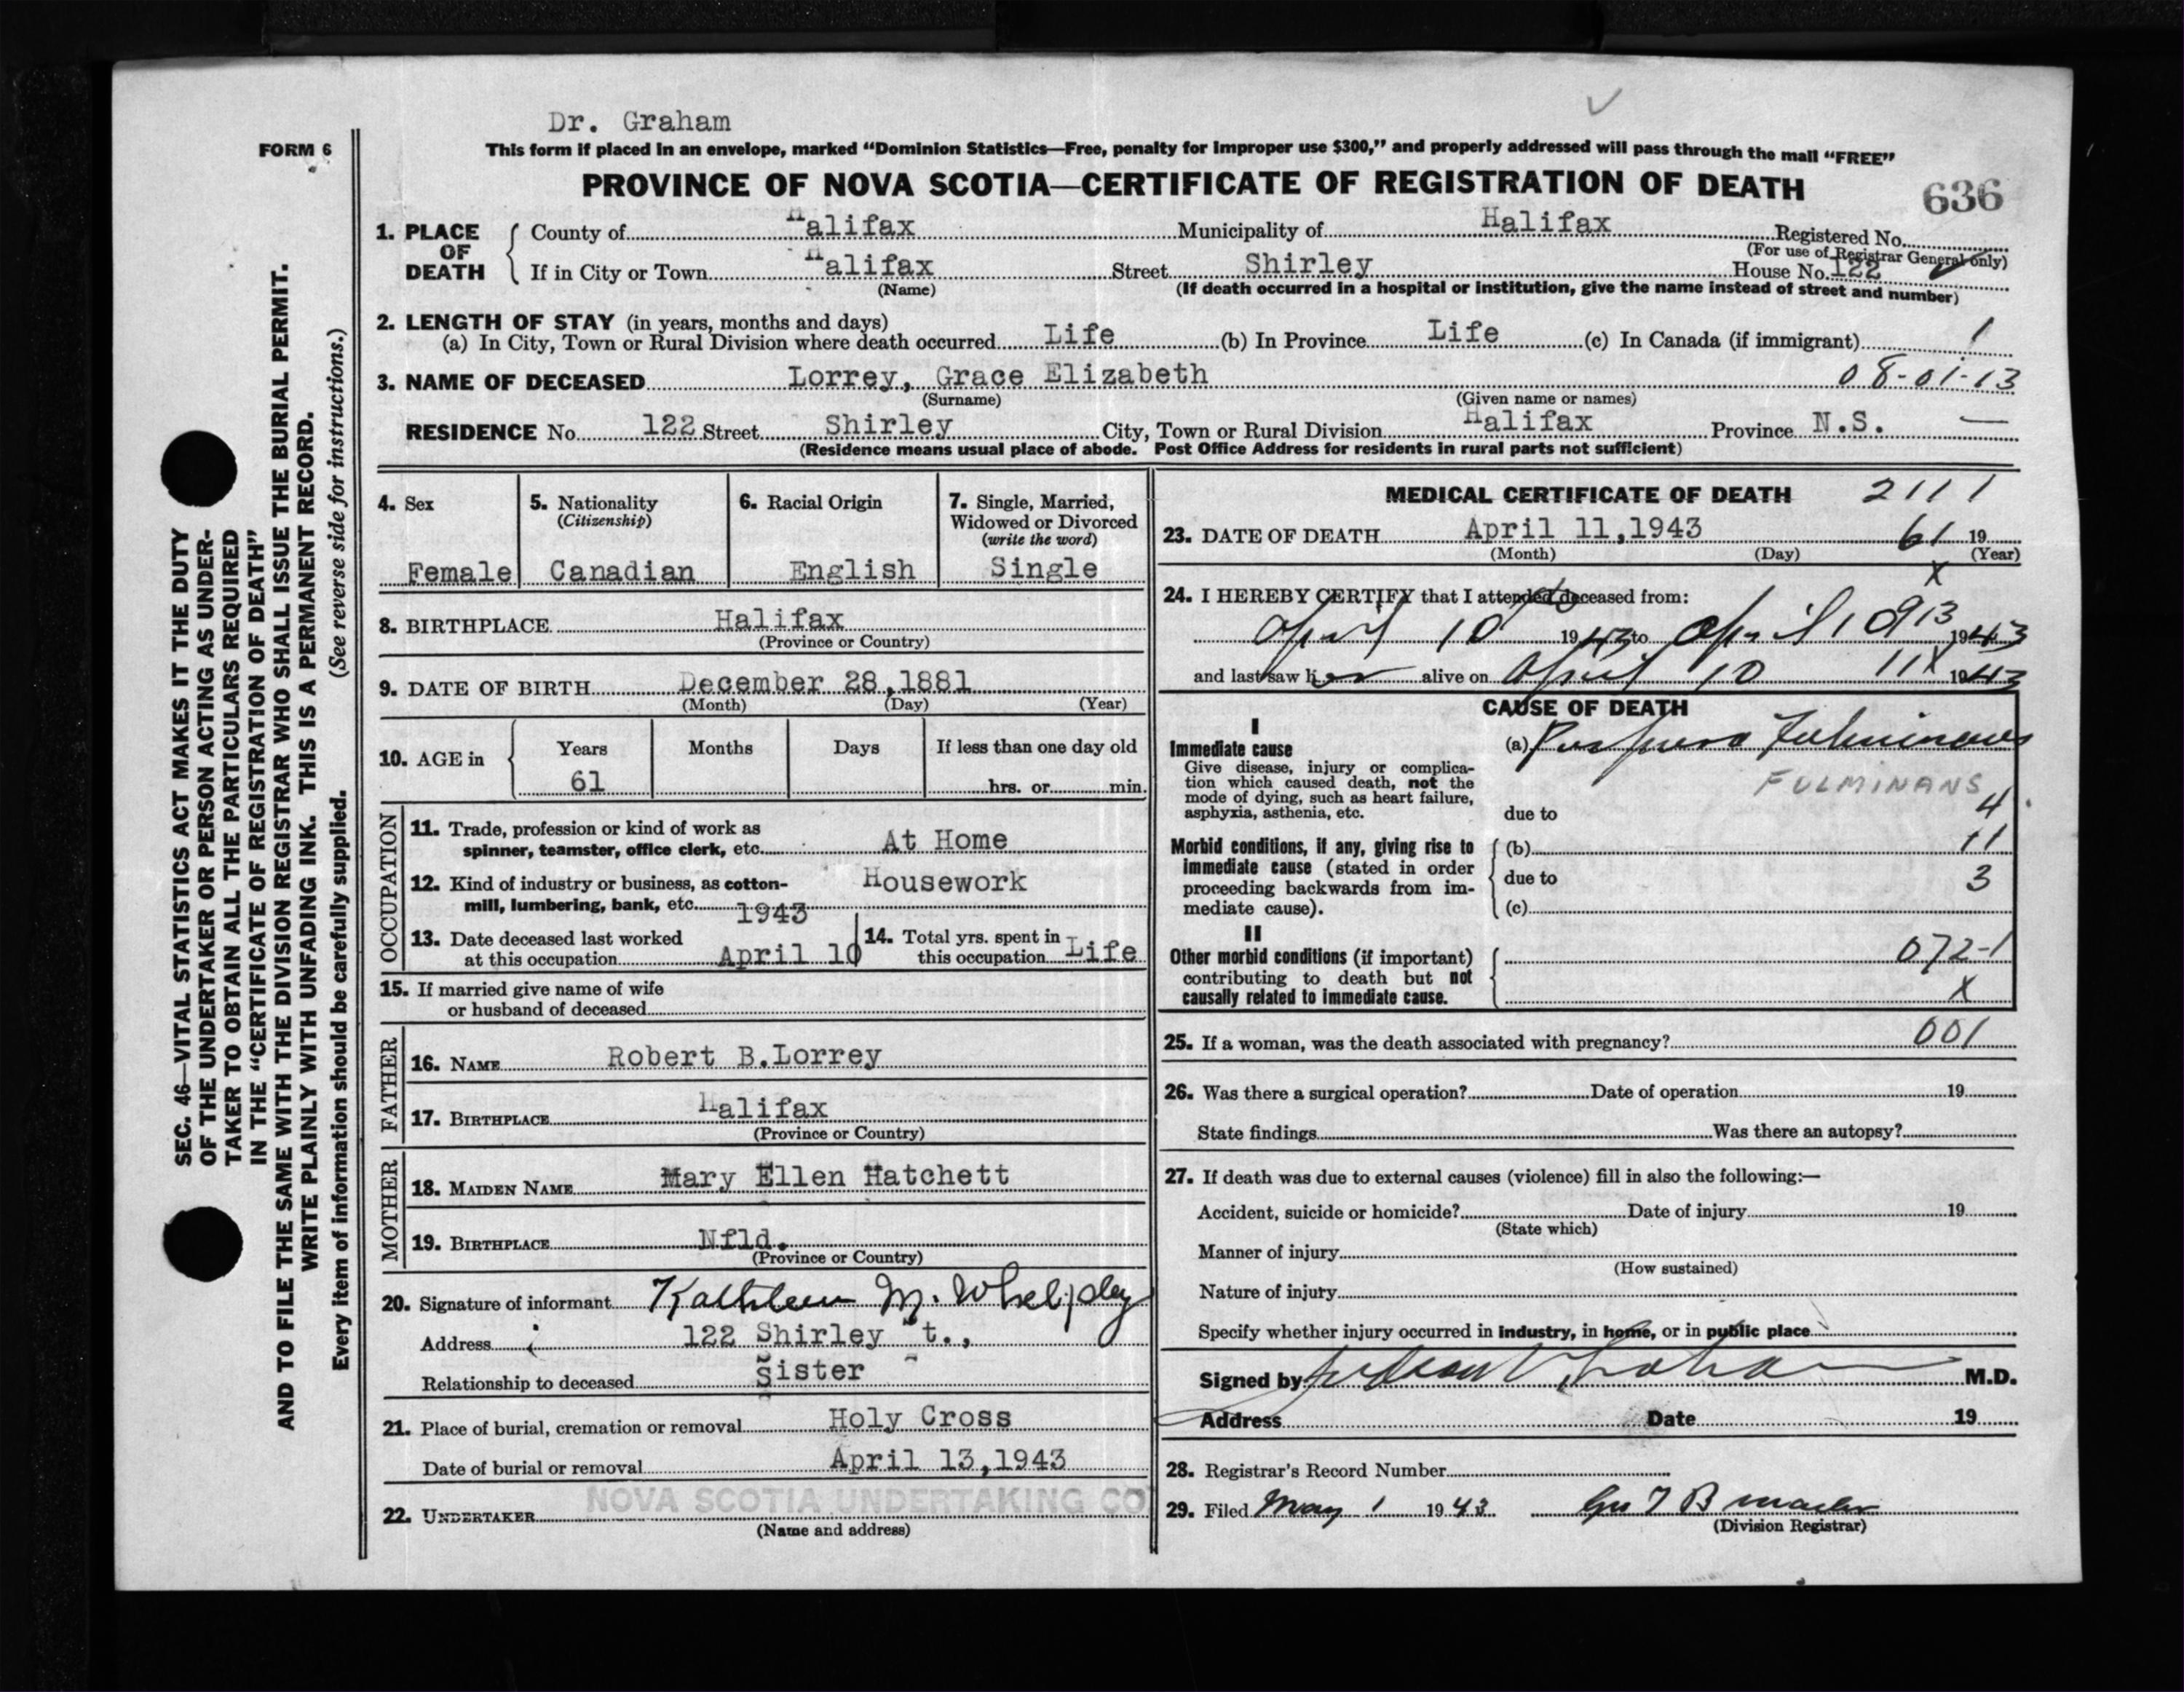 Dr. Graham
FORM 6
This form if placed in an envelope, marked “Dominion Statistics—Free, penalty for improper use $300,” and properly addressed will pass through the mail “FREE”
PROVINCE OF NOVA SCOTIA—CERTIFICATE OF REGISTRATION OF DEATH
636
1. PLACE OF DEATH
County of Halifax Municipality of Halifax Registered No.
(For use of Registrar General only)
If in City or Town Halifax Street Shirley House No. 122
(Name) (If death occurred in a hospital or institution, give the name instead of street and number)
2. LENGTH OF STAY (in years, months and days)
(a) In City, Town or Rural Division where death occurred Life (b) In Province Life (c) In Canada (if immigrant) 1
3. NAME OF DECEASED Lorrey, Grace Elizabeth 08-01-13
(Surname) (Given name or names)
RESIDENCE No. 122 Street Shirley City, Town or Rural Division Halifax Province N.S. —
(Residence means usual place of abode. Post Office Address for residents in rural parts not sufficient)
4. Sex
Female
5. Nationality
(Citizenship)
Canadian
6. Racial Origin
English
7. Single, Married,
Widowed or Divorced
(write the word)
Single
8. BIRTHPLACE Halifax
(Province or Country)
9. DATE OF BIRTH December 28,1881
(Month) (Day) (Year)
10. AGE in
Years Months Days If less than one day old
61 hrs. or min.
OCCUPATION
11. Trade, profession or kind of work as
spinner, teamster, office clerk, etc. At Home
12. Kind of industry or business, as cotton-
mill, lumbering, bank, etc. Housework
1943
13. Date deceased last worked
at this occupation April 10
14. Total yrs. spent in
this occupation Life
15. If married give name of wife
or husband of deceased
FATHER
16. NAME Robert B.Lorrey
17. BIRTHPLACE Halifax
(Province or Country)
MOTHER
18. MAIDEN NAME Mary Ellen Hatchett
19. BIRTHPLACE Nfld.
(Province or Country)
20. Signature of informant Kathleen M. Whelpley
Address 122 Shirley St.,
Relationship to deceased Sister
21. Place of burial, cremation or removal Holy Cross
Date of burial or removal April 13,1943
22. UNDERTAKER NOVA SCOTIA UNDERTAKING CO
(Name and address)
MEDICAL CERTIFICATE OF DEATH 2111
23. DATE OF DEATH April 11,1943 61 19
(Month) (Day) (Year)
X
24. I HEREBY CERTIFY that I attended deceased from:
April 10 1943 to April 10 913 1943
and last saw her alive on April 10 11X 1943
CAUSE OF DEATH
I
Immediate cause
Give disease, injury or complica-
tion which caused death, not the
mode of dying, such as heart failure,
asphyxia, asthenia, etc.
(a) Purpura
FULMINANS
due to 4
Morbid conditions, if any, giving rise to
immediate cause (stated in order
proceeding backwards from im-
mediate cause).
(b) 11
due to 3
(c)
II
Other morbid conditions (if important)
contributing to death but not
causally related to immediate cause.
072-1
X
25. If a woman, was the death associated with pregnancy? 001
26. Was there a surgical operation? Date of operation 19
State findings Was there an autopsy?
27. If death was due to external causes (violence) fill in also the following:—
Accident, suicide or homicide? Date of injury 19
(State which)
Manner of injury
(How sustained)
Nature of injury
Specify whether injury occurred in industry, in home, or in public place
Signed by Graham M.D.
Address Date 19
28. Registrar's Record Number
29. Filed May 1 1943
(Division Registrar)
SEC. 46—VITAL STATISTICS ACT MAKES IT THE DUTY
OF THE UNDERTAKER OR PERSON ACTING AS UNDER-
TAKER TO OBTAIN ALL THE PARTICULARS REQUIRED
IN THE “CERTIFICATE OF REGISTRATION OF DEATH”
AND TO FILE THE SAME WITH THE DIVISION REGISTRAR WHO SHALL ISSUE THE BURIAL PERMIT.
WRITE PLAINLY WITH UNFADING INK. THIS IS A PERMANENT RECORD.
Every item of information should be carefully supplied. (See reverse side for instructions.)